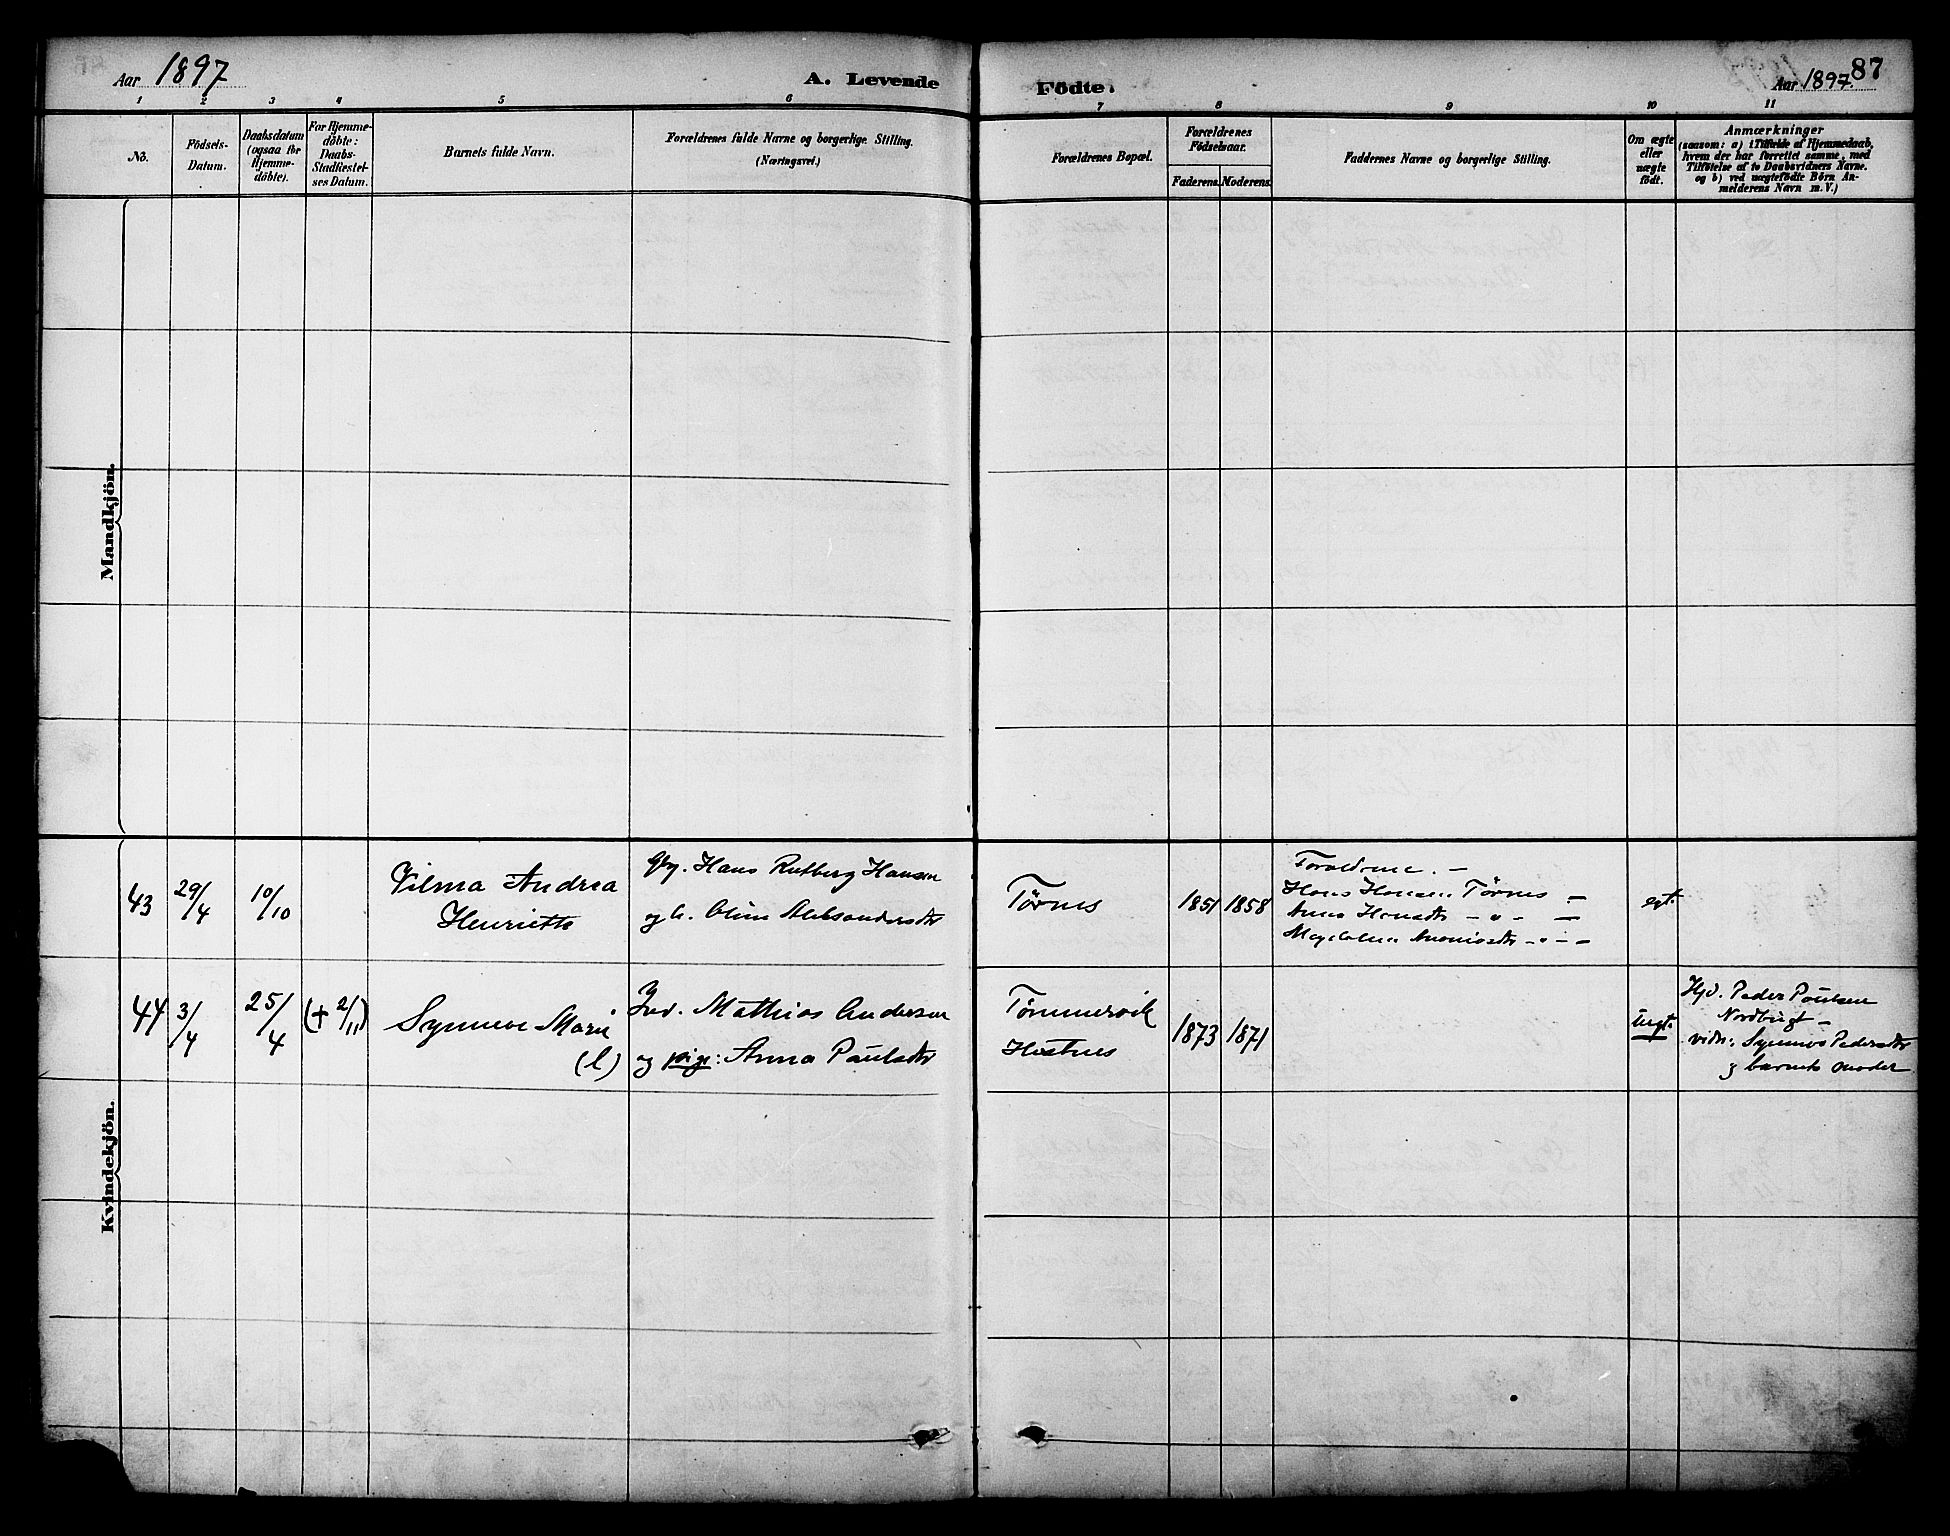 Aar 1897
A. Levende
Födte.
Aar 1897.
87
1 2 3 4 5 6 7 8 9 10 11
No.
Födsels-
Datum.
Daabsdatum
(ogsaa för
Hjemme-
döbte).
For Hjemme-
döbte:
Daabs-
Stadfæstel-
ses Datum.
Barnets fulde Navn.
Forældrenes fulde Navne og borgerlige Stilling.
(Næringsvei.)
Forældrenes Bopæl.
Forældrenes
Födselsaar.
Faderens. Moderens.
Faddernes Navne og borgerlige Stilling.
Om ægte
eller
uægte
födt.
Anmærkninger
(saasom: a) i Tilfælde af Hjemmedaab,
hvem der har forrettet samme, med
Tilföielse af to Daabsvidners Navne.
og b) ved uægtefödte Börn An-
melderens Navn m. V.)
Mandkjön.
Kvindekjön.
43
29/4
10/10
Vilma Andrea
Henriette
Gbg. Hans Rutberg Hansen
og h. Oline Aleksandersdtr
Tørnes
1851 1858
Forældrene. –
Hans Hansen Tørnes –
Anna Hansdtr – " – –
Magdalena
egt.
44
3/4
25/4
(+ 2/11)
Synneve Marie
(l)
Ind. Mathias Andersen
og pige: Anna Paulsdtr
Tømmervik
Hestnes
1873 1871
uegt.
Hjd. Peder Paulsen
Nordbugt –
vidn: Synneve Pedersdtr
g barnets moder